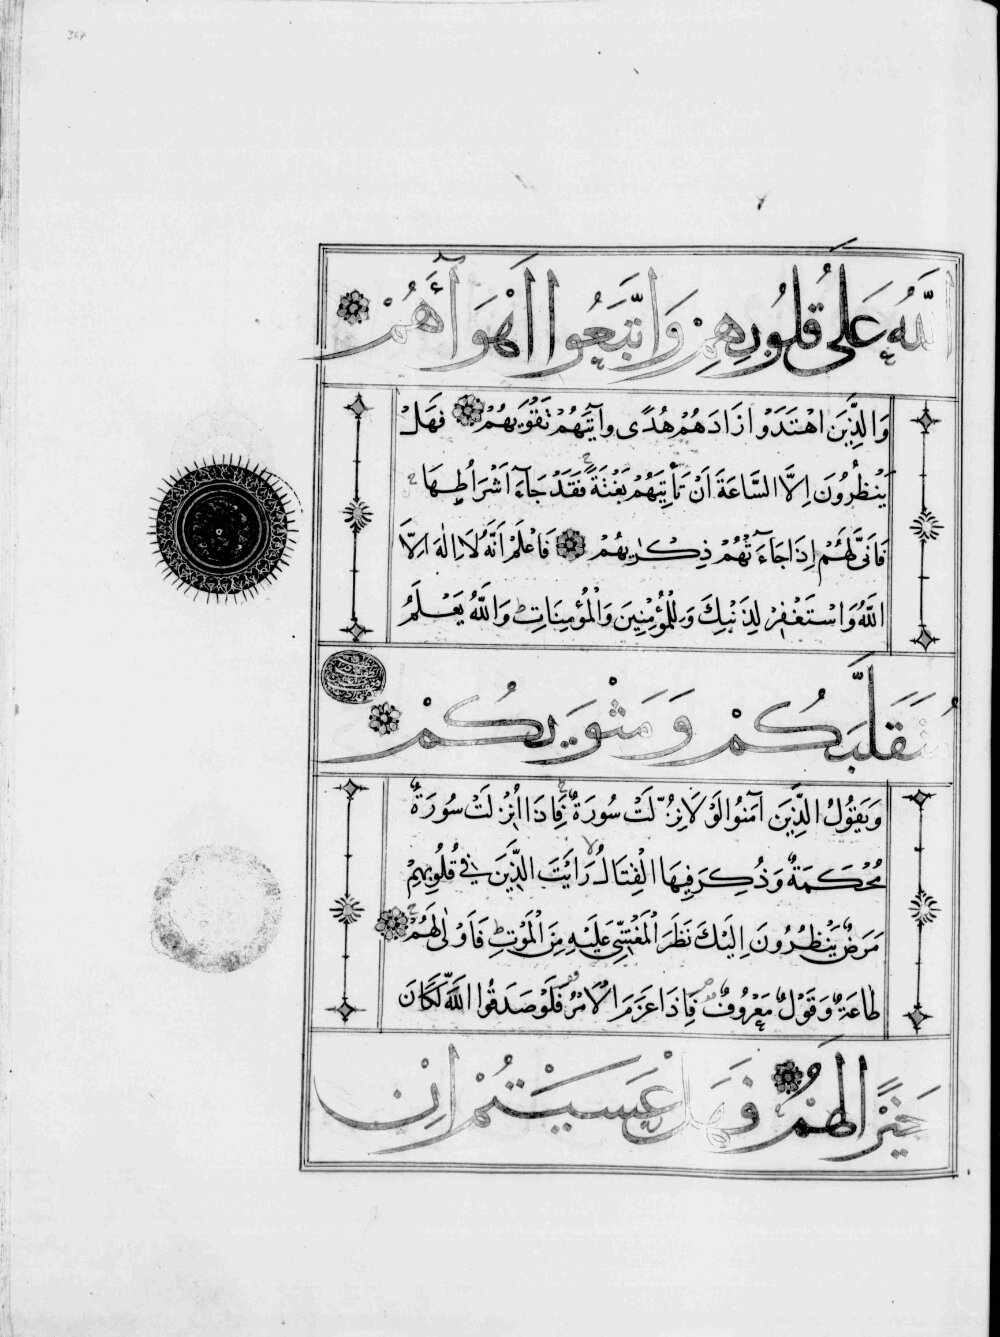 367
اللَّهُ عَلَىٰ قُلُوبِهِمْ وَاتَّبَعُوا أَهْوَآءَهُمْ
وَالَّذِينَ اهْتَدَوْا زَادَهُمْ هُدًى وَآتَيٰهُمْ تَقْوٰيهُمْ فَهَلْ
يَنْظُرُونَ اِلَّا السَّاعَةَ اَنْ تَأْتِيَهُمْ بَغْتَةً فَقَدْ جَآءَ اَشْرَاطُهَا
فَاَنّٰى لَهُمْ اِذَا جَآءَتْهُمْ ذِكْرٰيهُمْ فَاعْلَمْ اَنَّهُ لَا اِلٰهَ اِلَّا
اللَّهُ وَاسْتَغْفِرْ لِذَنْبِكَ وَلِلْمُؤْمِنِينَ وَالْمُؤْمِنَاتِ ط وَاللَّهُ يَعْلَمُ
مُتَقَلَّبَكُمْ وَمَثْوٰيكُمْ
وَيَقُولُ الَّذِينَ آمَنُوا لَوْلَا نُزِّلَتْ سُورَةٌ ج فَاِذَا اُنْزِلَتْ سُورَةٌ
مُحْكَمَةٌ وَذُكِرَ فِيهَا الْقِتَالُ لا رَاَيْتَ الَّذِينَ فِي قُلُوبِهِمْ
مَرَضٌ يَنْظُرُونَ اِلَيْكَ نَظَرَ الْمَغْشِيِّ عَلَيْهِ مِنَ الْمَوْتِ ط فَاَوْلٰى لَهُمْ ج
طَاعَةٌ وَقَوْلٌ مَعْرُوفٌ فَاِذَا عَزَمَ الْاَمْرُ فَلَوْ صَدَقُوا اللَّهَ لَكَانَ
خَيْرًا لَهُمْ فَهَلْ عَسَيْتُمْ اِنْ